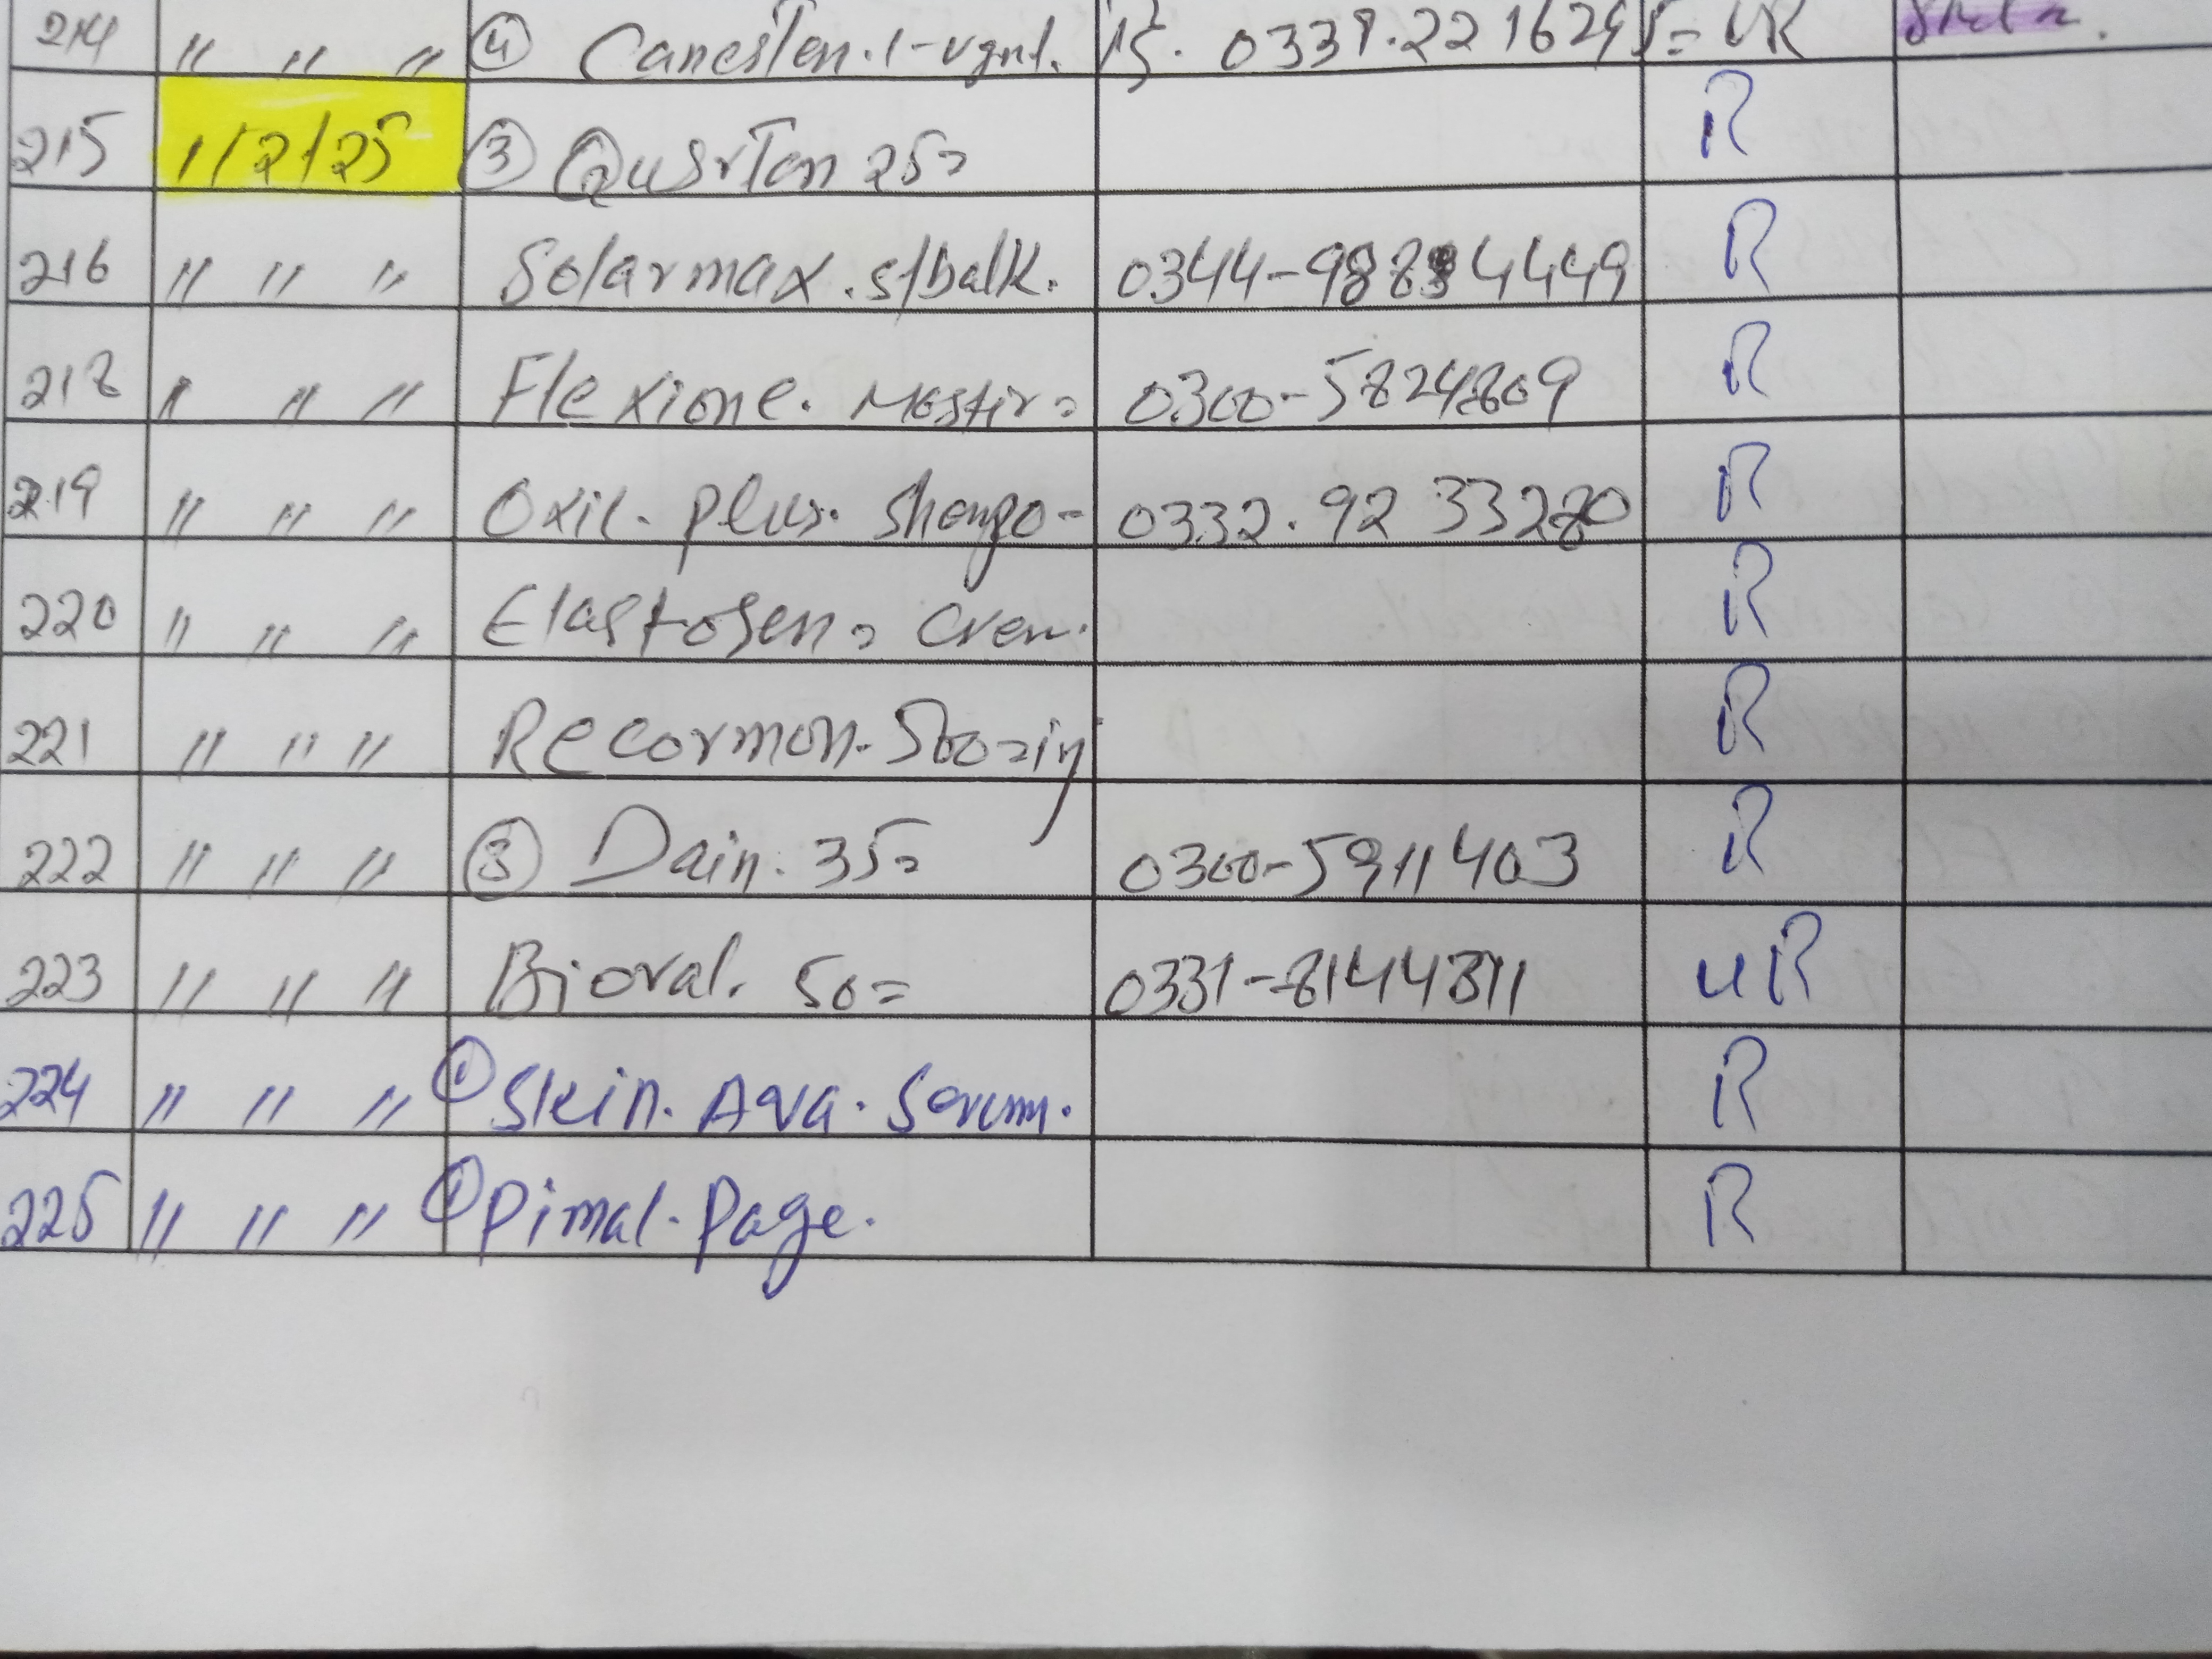 214 " " " ④ Canesten.1-vgnl. 0339.221629 = UR
215 1/2/25 ③ Qusrten 25= R
216 " " " Solarmax.s/balk. 0344-98884449 R
218 " " " Flexione. Mostir= 0300-5824809 R
219 " " " Oxil-plus. Shampo- 0332.9233280 R
220 " " " Elastosen= Crem. R
221 " " " Recormon-500=inj R
222 " " " ③ Dain.35= 0300-5911403 R
223 " " " Bioral. 50= 0331-8144811 UR
224 " " " ① Skin.Ava.Serum. R
225 " " " ① Pimal.Page. R